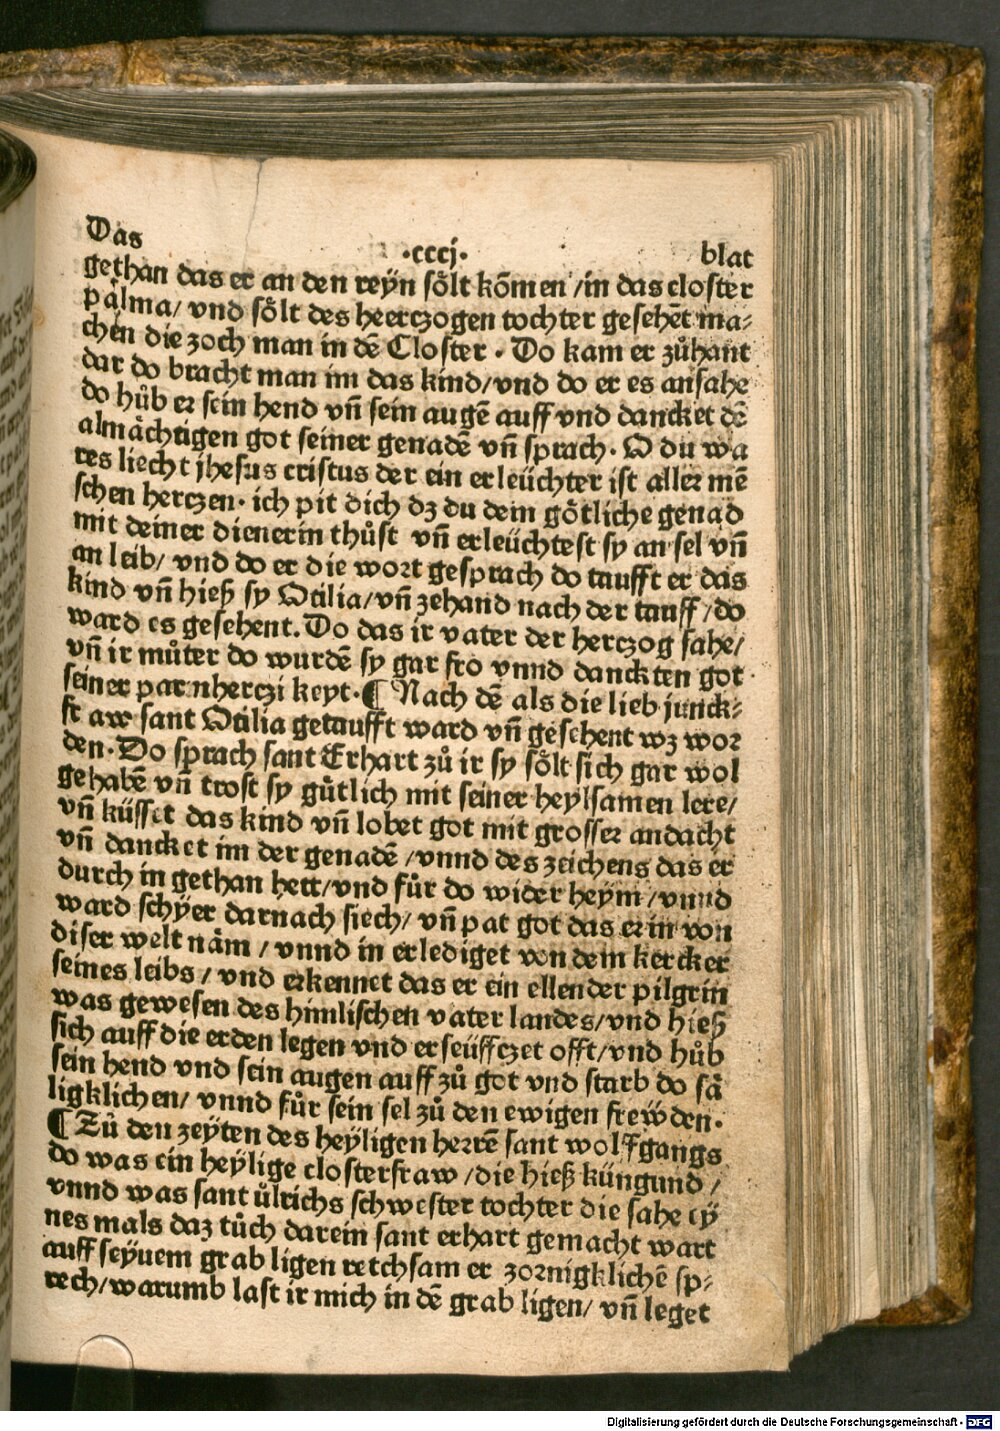 Das .cccj. blat
gethan das er an den reÿn sölt kōmen /in das closter
palma/ vnd sölt des heerczogen tochter gesehēt ma⸗
chen die zoch man in dē Closter . Do kam er zůhant
dar do bracht man im das kind/vnd do er es ansahe
do hůb er sein hend vñ sein augē auff vnd dancket dē
almächtigen got seiner genadē vñ sprach. O du wa
res liecht jhesus cristus der ein erleüchter ist aller mē
schen herczen. ich pit dich dz du dein götliche genad
mit deiner dienerin thůst vñ erleüchtest sy an sel vñ
an leib/ vnd do er die wort gesprach do taufft er das
kind vñ hieß sy Otilia/vñ zehand nach der tauff /do
ward es gesehent. Do das ir vater der herczog sahe/
vñ ir můter do wurdē sy gar fro vnnd danckten got
seiner parnherczi keyt. ¶ Nach dē als die lieb junck⸗
fraw sant Otilia getaufft ward vñ gesehent wz wor
den. Do sprach sant Erhart zů ir sy sölt sich gar wol
gehabē vñ trost sy gůtlich mit seiner heylsamen lere/
vñ küsset das kind vñ lobet got mit grosser andacht
vñ dancket im der genadē /vnnd des zeichens das er
durch in gethan hett/vnd fůr do wider heÿm /vnnd
ward schÿer darnach siech/ vñ pat got das er in von
diser welt näm / vnnd in erlediget von dem kercker
seines leibs / vnd erkennet das er ein ellender pilgrin
was gewesen des himlischen vater landes/vnd hieß
sich auff die erden legen vnd erseüffczet offt/vnd hůb
sein hend vnd sein augen auff zů got vnd starb do sä
ligklichen/ vnnd fůr sein sel zů den ewigen frewden.
¶ Zů den zeÿten des heÿligen herrē sant wolfgangs
do was ein heÿlige closterfraw /die hieß küngund /
vnnd was sant ůlrichs schwester tochter die sahe eÿ
nes mals daz tůch darein sant erhart gemacht wart
auff seÿuem grab ligen retchsam er zornigklichē sp⸗
rech/warumb last ir mich in dē grab ligen/ vñ leget
Digitalisierung gefördert durch die Deutsche Forschungsgemeinschaft - DFG